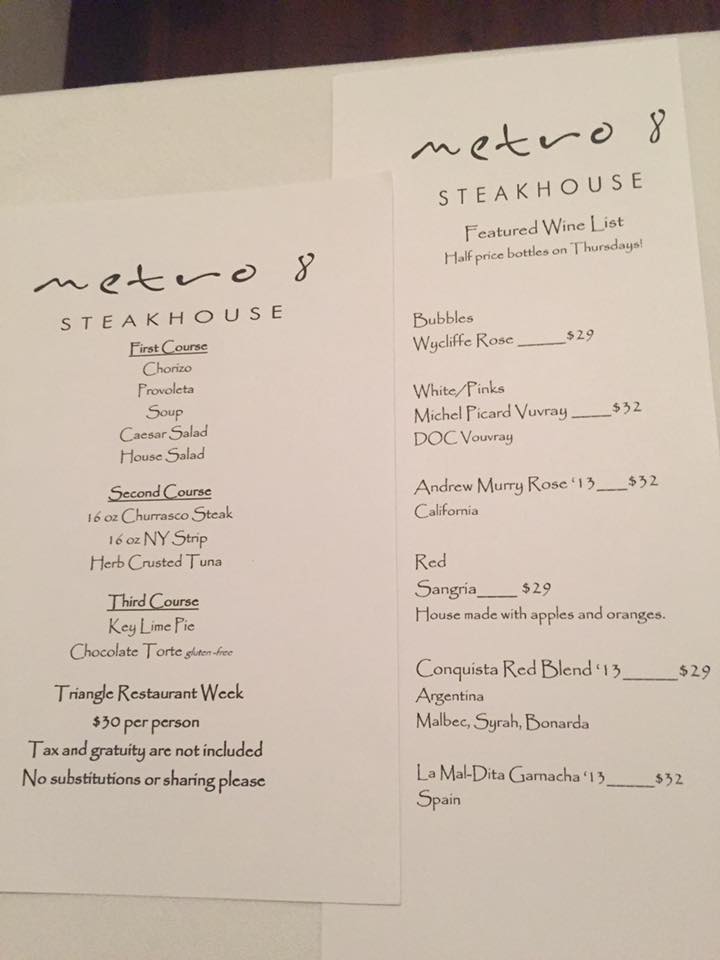 metro 8
STEAKHOUSE
First Course
Chorizo
Provoleta
Soup
Caesar Salad
House Salad
Second Course
16 oz Churrasco Steak
16 oz NY Strip
Herb Crusted Tuna
Third Course
Key Lime Pie
Chocolate Torte gluten-free
Triangle Restaurant Week
$30 per person
Tax and gratuity are not included
No substitutions or sharing please
metro 8
STEAKHOUSE
Featured Wine List
Half price bottles on Thursdays!
Bubbles
Wycliffe Rose _____$29
White/Pinks
Michel Picard Vuvray ____$32
DOC Vouvray
Andrew Murry Rose ‘13___$32
California
Red
Sangria____ $29
House made with apples and oranges.
Conquista Red Blend ‘13______$29
Argentina
Malbec, Syrah, Bonarda
La Mal-Dita Garnacha ‘13_____$32
Spain